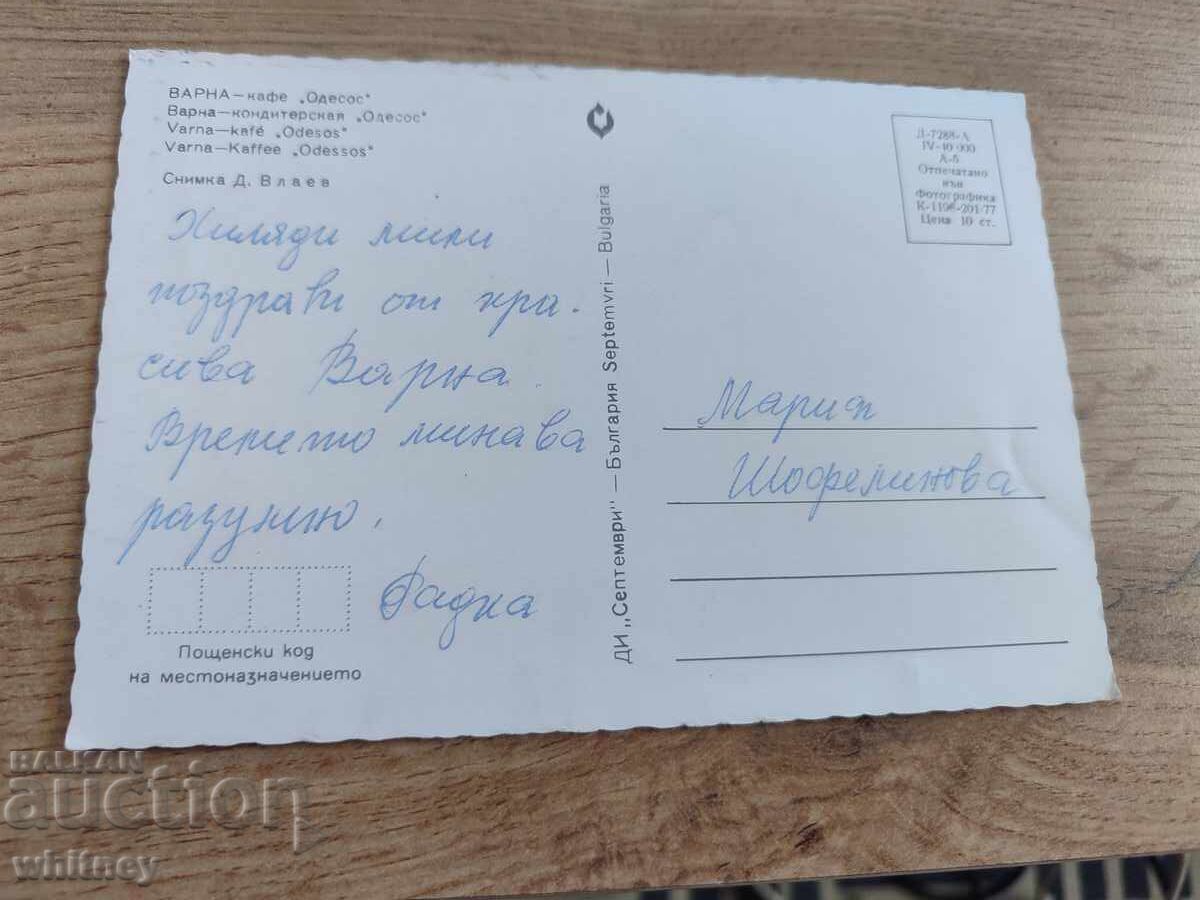 ВАРНА — кафе „Одесос"
Варна — кондитерская „Одесос"
Varna — kafé „Odesos"
Varna — Kaffee „Odessos"
Снимка Д. Влаев
Хиляди мили
поздрави от кра-
сива Варна.
Времето минава
разумно.
Радка
Пощенски код
на местоназначението
ДИ „Септември" — България Septemvri — Bulgaria
Д-7288-А
IV-10 000
А-6
Отпечатано
във
Фотографика
К-1196-201/77
Цена 10 ст.
Мария
Шофелинова
BALKAN
auction
whitney